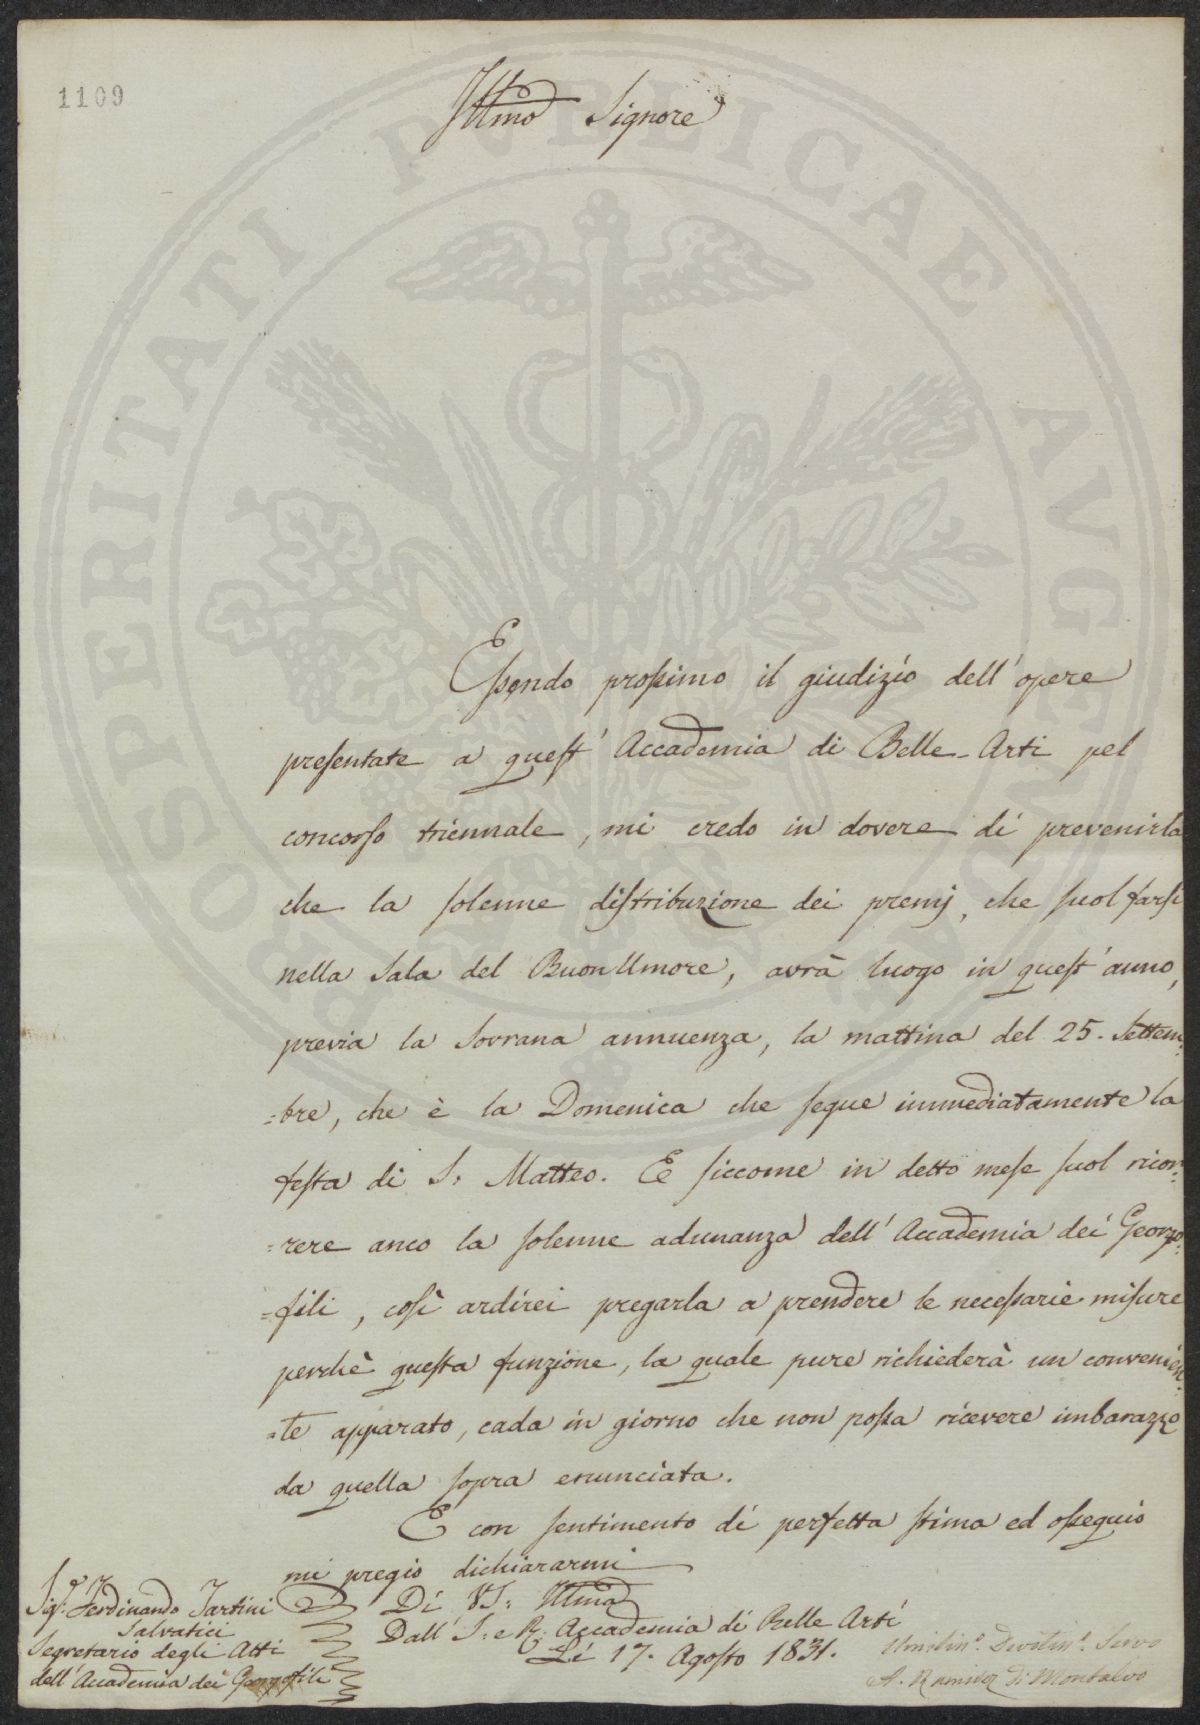 1109
Illmo Signore
PROSPERITATI PVBLICAE AVGENDAE
Essendo prossimo il giudizio dell' opere
presentate a quest' Accademia di Belle-Arti pel
concorso triennale, mi credo in dovere di prevenirla
che la solenne distribuzione dei premj, che suol farsi
nella Sala del BuonUmore, avrà luogo in quest' anno,
previa la Sovrana annuenza, la mattina del 25. Settem:
=bre, che è la Domenica che segue immediatamente la
festa di S: Matteo. E siccome in detto mese suol ricor:
=rere anco la solenne adunanza dell' Accademia dei Georgo:
=fili, così ardirei pregarla a prendere le necessarie misure
perchè questa funzione, la quale pure richiederà un convenien:
=te apparato, cada in giorno che non possa ricevere imbarazzo
da quella sopra enunciata.
E con sentimento di perfetta stima ed ossequio
mi pregio dichiararmi
Di VS: Illma
Dall' I: e R: Accademia di Belle Arti
Li 17. Agosto 1831.
Sigr. Ferdinando Tartini
Salvatici
Segretario degli Atti
dell' Accademia dei Georgofili
Umilimo. Devotimo. Servo
A. Ramirez di Montalvo